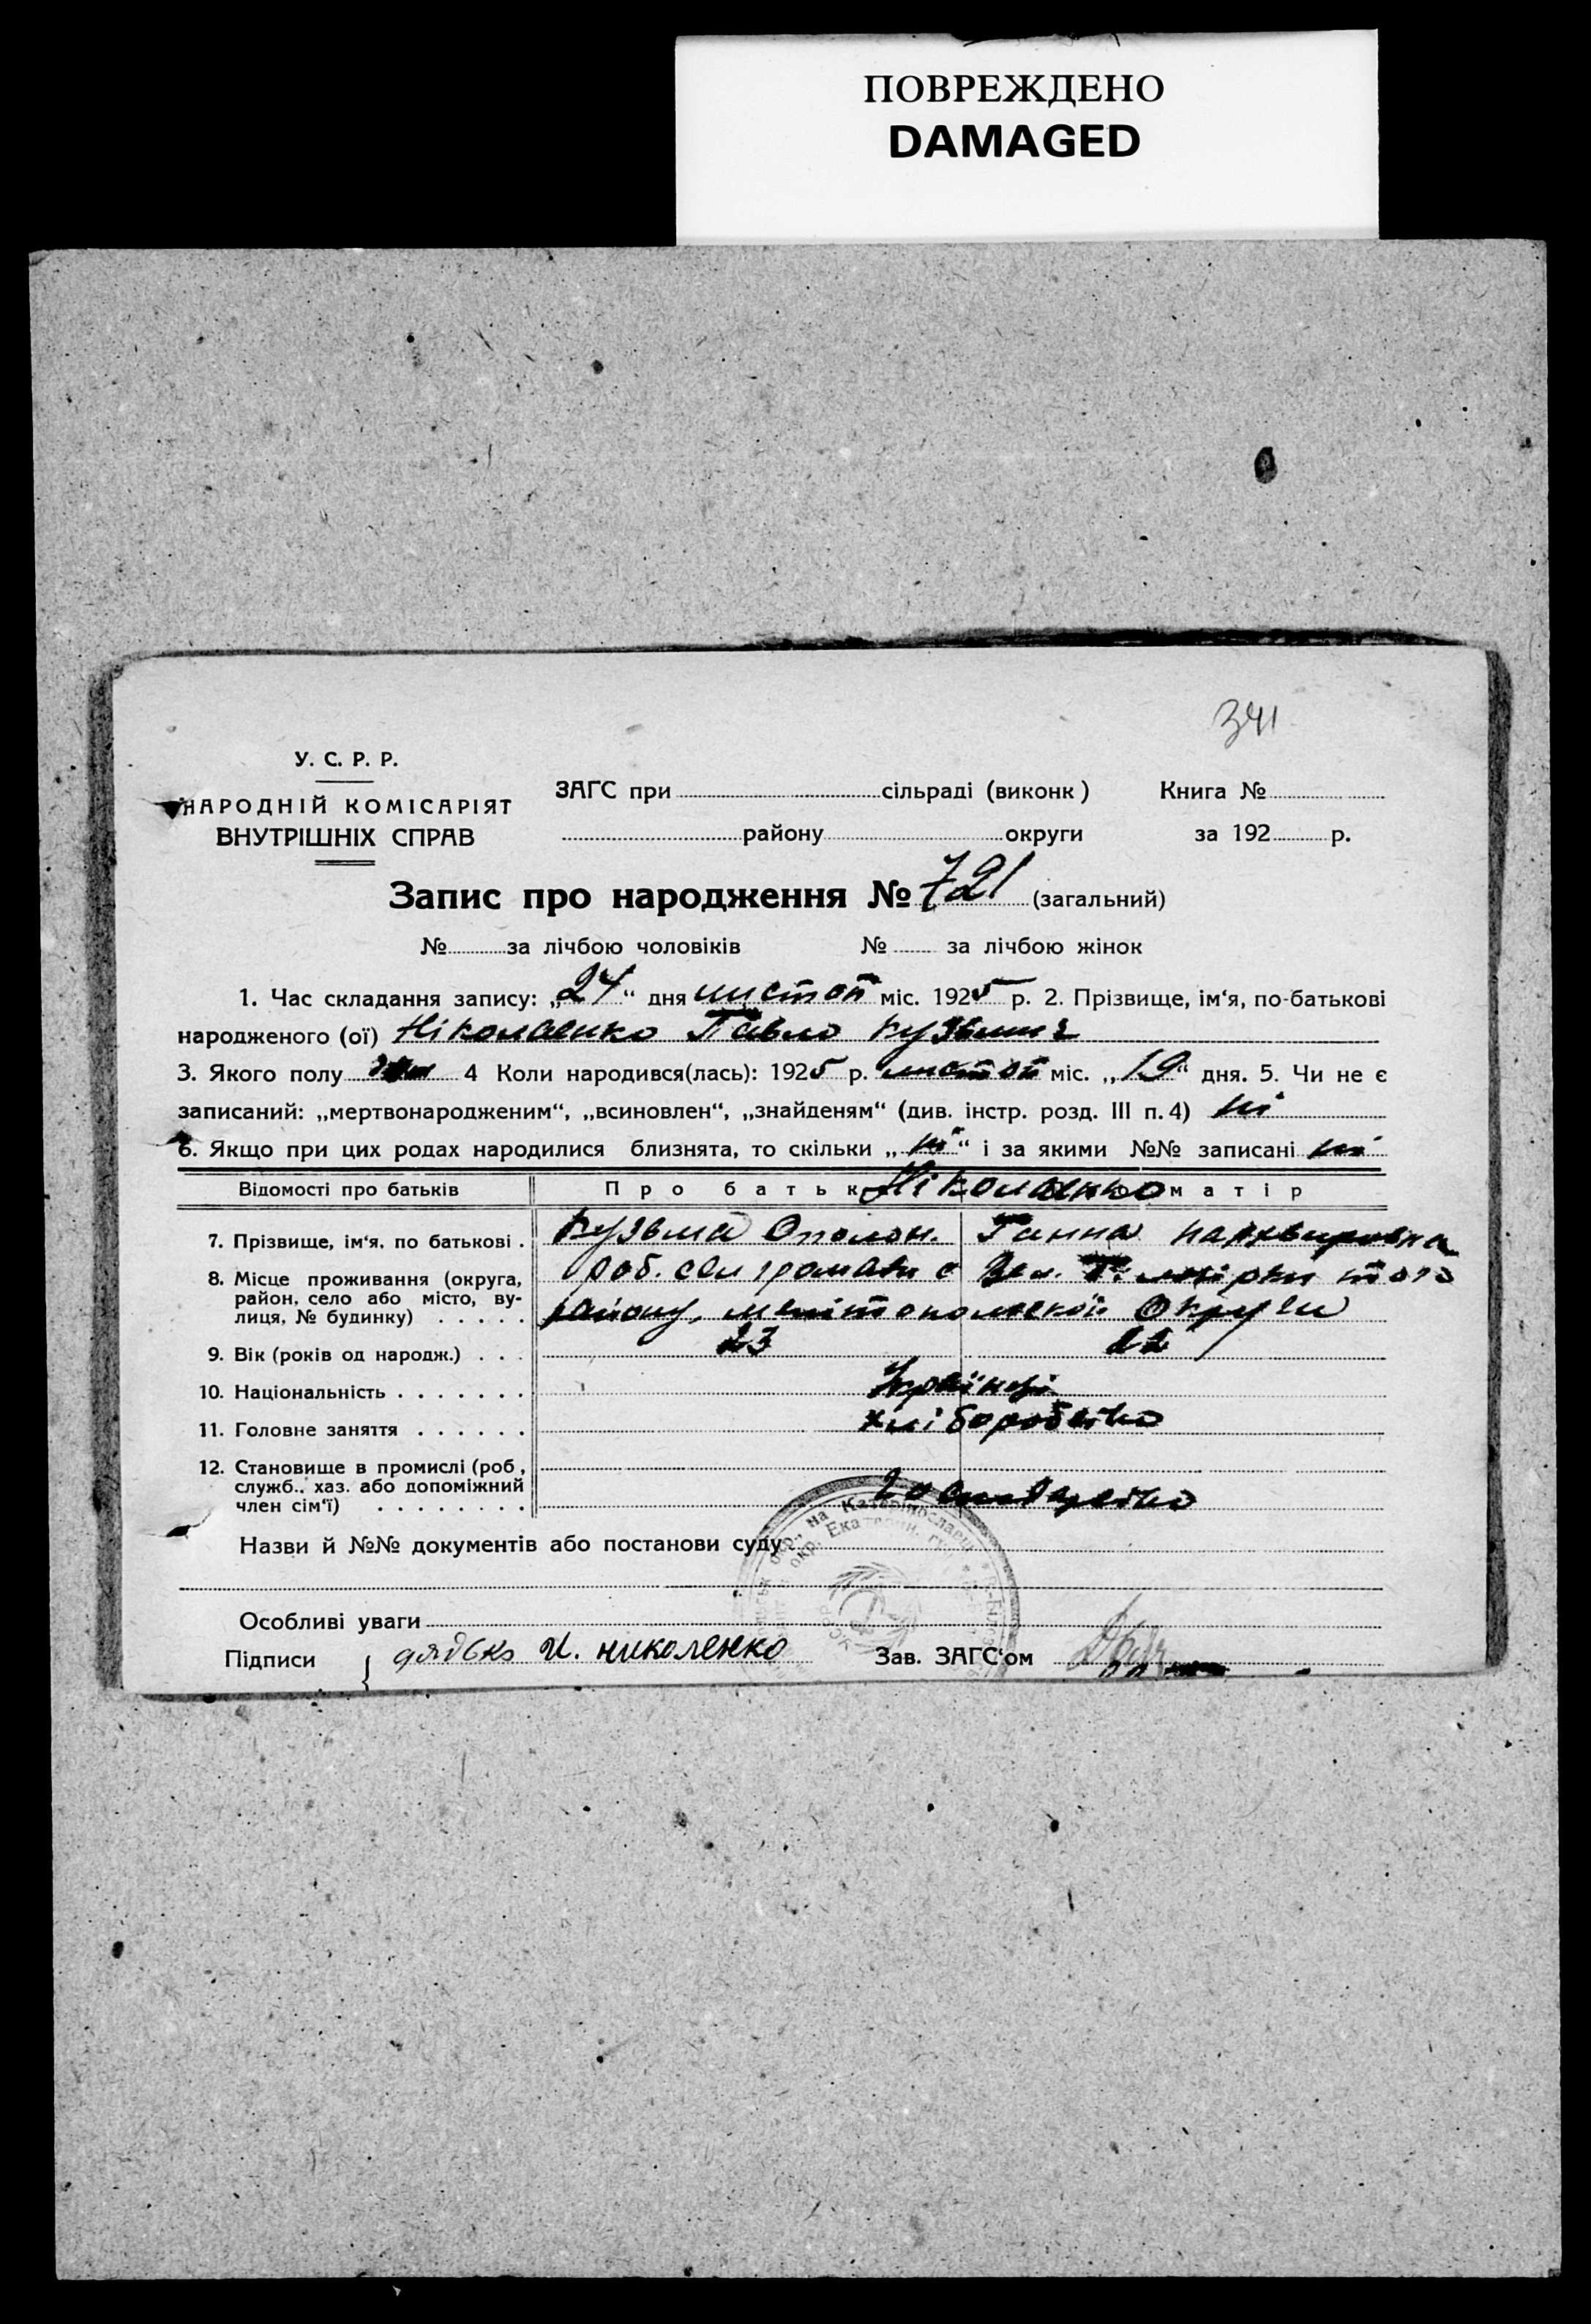 ПОВРЕЖДЕНО
DAMAGED
341
У. С. Р. Р.
НАРОДНІЙ КОМІСАРІЯТ
ВНУТРІШНІХ СПРАВ
ЗАГС при сільраді (виконк)
району округи
Книга №
за 192 р.
Запис про народження № 721 (загальний)
№ за лічбою чоловіків № за лічбою жінок
1. Час складання запису: „24“ дня листоп міс. 1925 р. 2. Прізвище, ім‘я, по-батькові
народженого (ої) Ніколаенко Павло Кузьмич
3. Якого полу 4 Коли народився(лась): 1925 р. листоп міс. „19“ дня. 5. Чи не є
записаний: „мертвонародженим“, „всиновлен“, „знайденям“ (див. інстр. розд. III п. 4) ні
6. Якщо при цих родах народилися близнята, то скільки „ні“ і за якими №№ записані ні
Відомості про батьків Про батьк Ніколаенко матір
7. Прізвище, ім‘я, по батькові . Кузьма Ополон. Ганна
8. Місце проживання (округа, район, село або місто, вулиця, № будинку) . . . . . роб. сел громади с того
району, мелітопольської Округи
9. Вік (років од народж.) . . . 23 22
10. Національність . . . . . . . Українці
11. Головне заняття . . . . . . хліборобство
12. Становище в промислі (роб,
служб., хаз. або допоміжний
член сім‘ї) . . . . . . . .
Назви й №№ документів або постанови суду
Особливі уваги
Підписи { дядько И. николенко Зав. ЗАГС‘ом